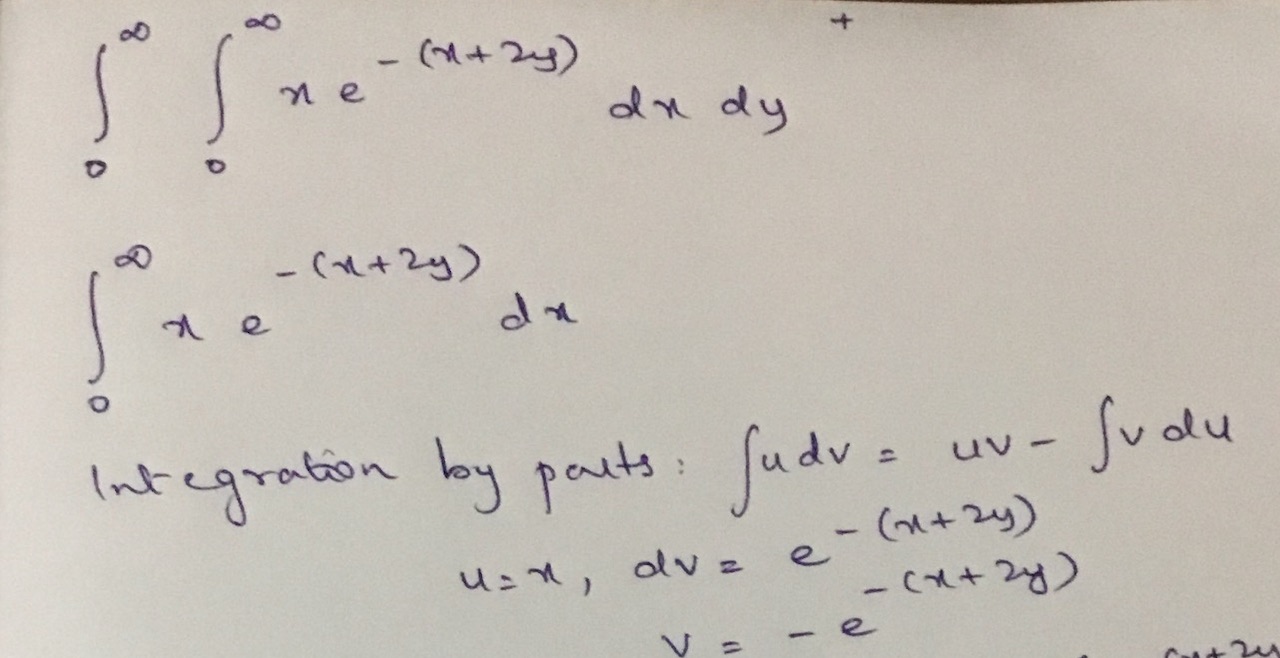 ∫₀^∞ ∫₀^∞ x e^-(x+2y) dx dy
∫₀^∞ x e^-(x+2y) dx
Integration by parts: ∫u dv = uv - ∫v du
u=x, dv = e^-(x+2y)
v = -e^-(x+2y)